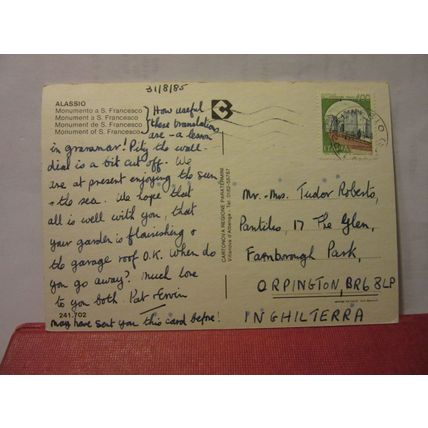 31/8/85
ALASSIO
Monumento a S. Francesco
Monument a S. Francesco
Monument de S. Francesco
Monument of S. Francesco
How useful
these translations
are - a lesson
in grammar! Pity the wall-
dial is a bit cut off. We
are at present enjoying the sun
& the sea. We hope that
all is well with you, that
your garden is flourishing &
the garage roof O.K. When do
you go away? Much love
to you both Pat
241.702
may have sent you this card before!
CARTONOVA REGIONE PARATERMINI
Villanova d'Albenga - Tel. 0182-55767
400
ITALIA
Mr. & Mrs. Tudor Roberts,
Pantiles, 17 The Glen,
Farnborough Park,
ORPINGTON, BR6 8LP
INGHILTERRA